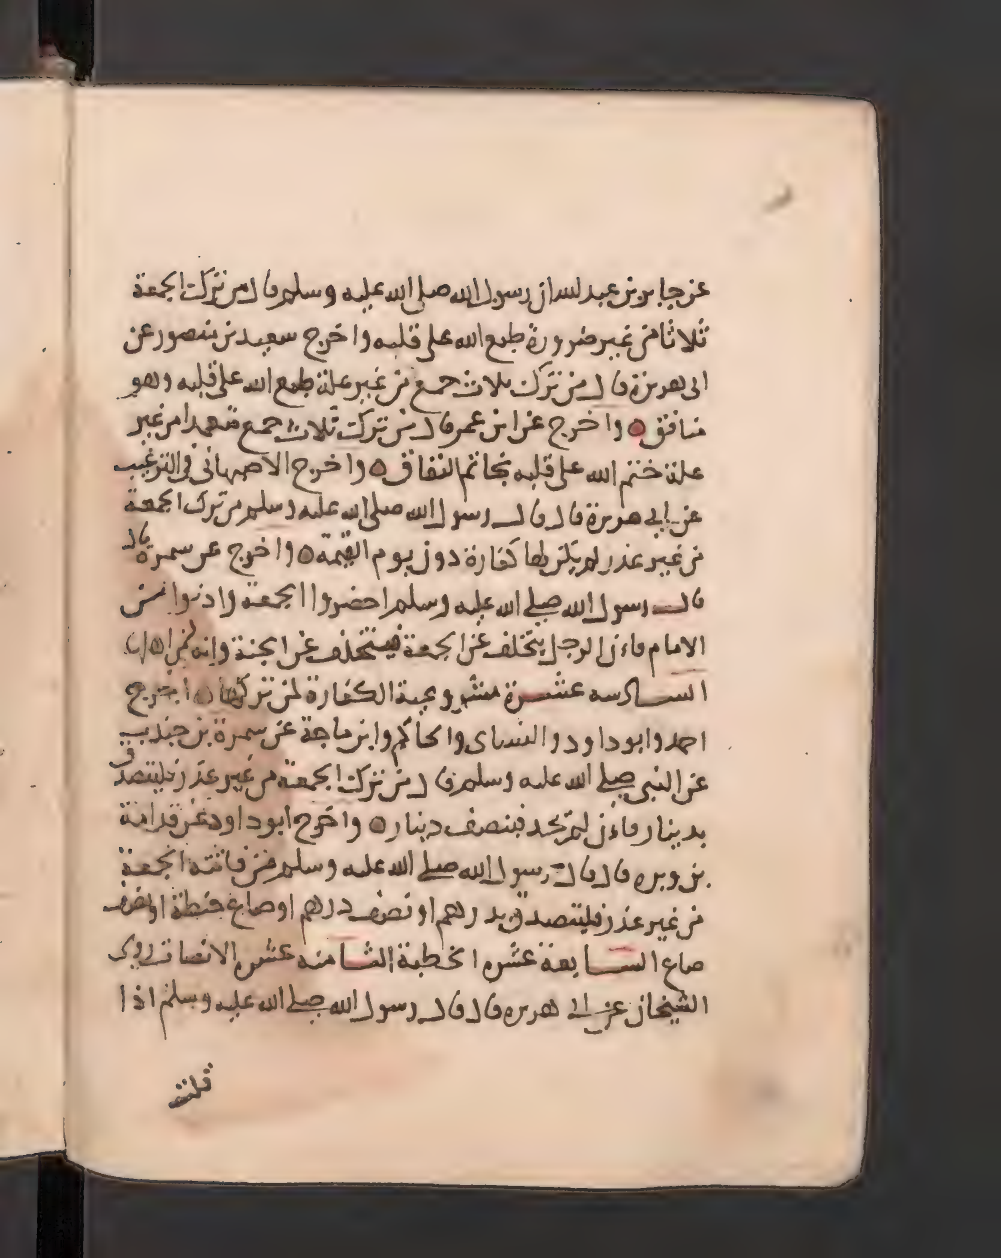 عن جابر بن عبد لله ان رسول الله صلى الله عليه وسلم قال من ترك الجمعة
ثلاثا من غير ضرورة طبع الله على قلبه واخرج سعيد بن منصور عن
ابى هريرة قال من ترك ثلاث جمع من غير علة طبع الله على قلبه وهو
منافق ه واخرج عن ابن عمر قال من ترك ثلاث جمع متعمدا من غير
علة ختم الله على قلبه بخاتم النفاق ه واخرج الاصبهانى فى الترغيب
عن ابى هريرة قال قال رسول الله صلى الله عليه وسلم من ترك الجمعة
من غير عذر لم يكن لها كفارة دون يوم القيمة ه واخرج عن سمرة قال
قال رسول الله صلى الله عليه وسلم احضروا الجمعة وادنوا من
الامام فاءن الرجل يتخلف عن الجمعة فيتخلف عن الجنة وانه لمن اهلها
السادسه عشرة مشروعية الكفارة لمن تركها ه اخرج
احمد وابو داود والنساى والحاكم وابن ماجة عن سمرة بن جندب
عن النبى صلى الله عليه وسلم قال من ترك الجمعة من غير عذر فليتصدق
بدينار فاءن لم يجد فبنصف دينار ه واخرج ابو داود عن قدامة
بن وبره قال قال رسول الله صلى الله عليه وسلم من فاتته الجمعة
من غير عذر فليتصدق بدرهم او نصف درهم او صاع حنطة او نصف
صاع السابعة عشره الخطبة الثامنه عشره الانصات روى
الشيخان عن ابى هريره قال قال رسول الله صلى الله عليه وسلم اذا
قلت